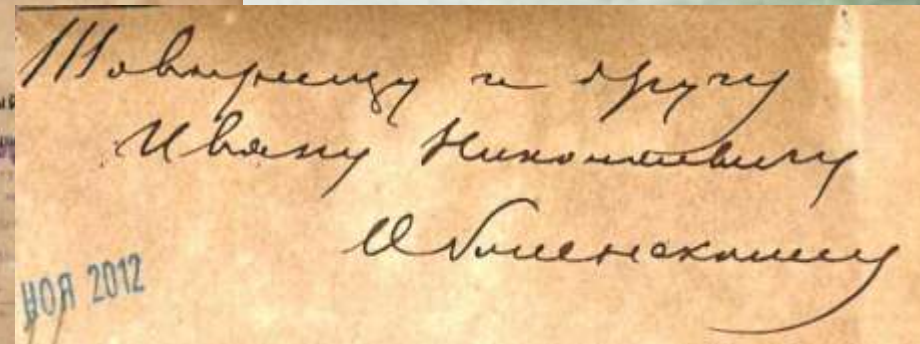 Товарищу и другу
Ивану Николаевичу
Оболенскому
НОЯ 2012